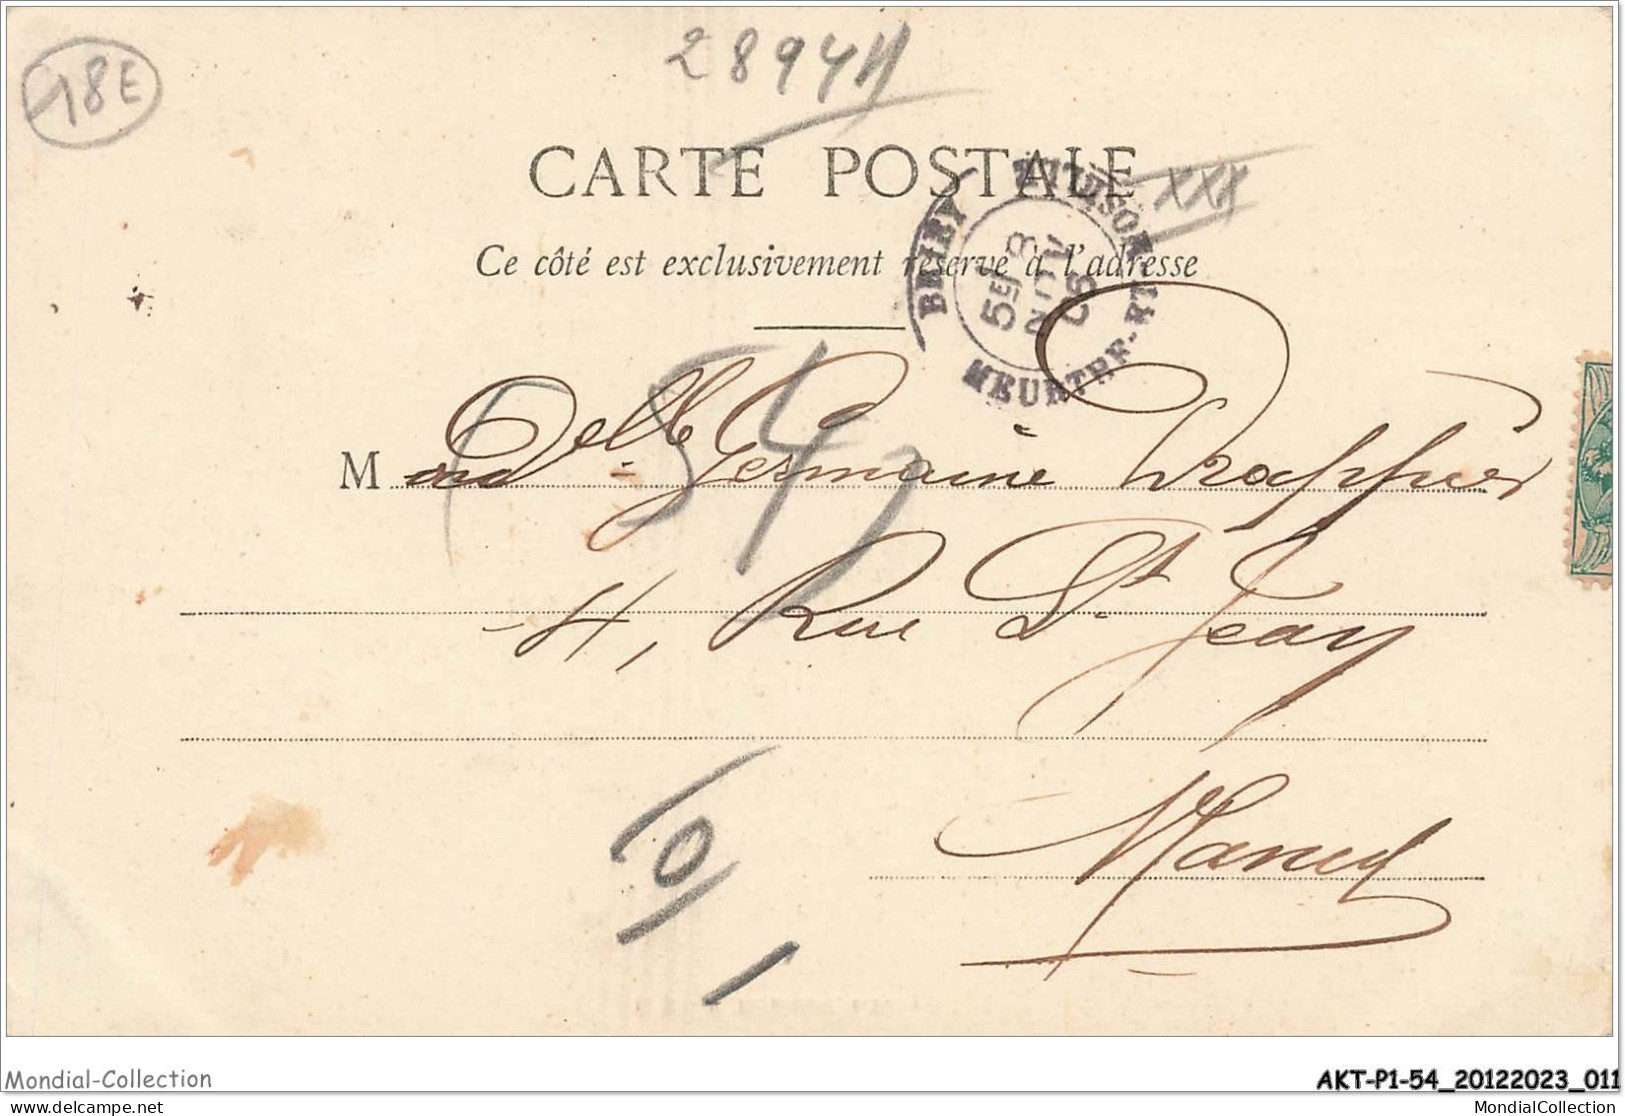 18E
2894
CARTE POSTALE
XXX
Ce côté est exclusivement réservé à l'adresse
BRIEY
5E 8
NOV
05
MEURTHE-ET-
M Delle Germaine Drappier
54
4, Rue St Jean
Nancy
Mondial-Collection
AKT-P1-54_20122023_011
delcampe.net
MondialCollection